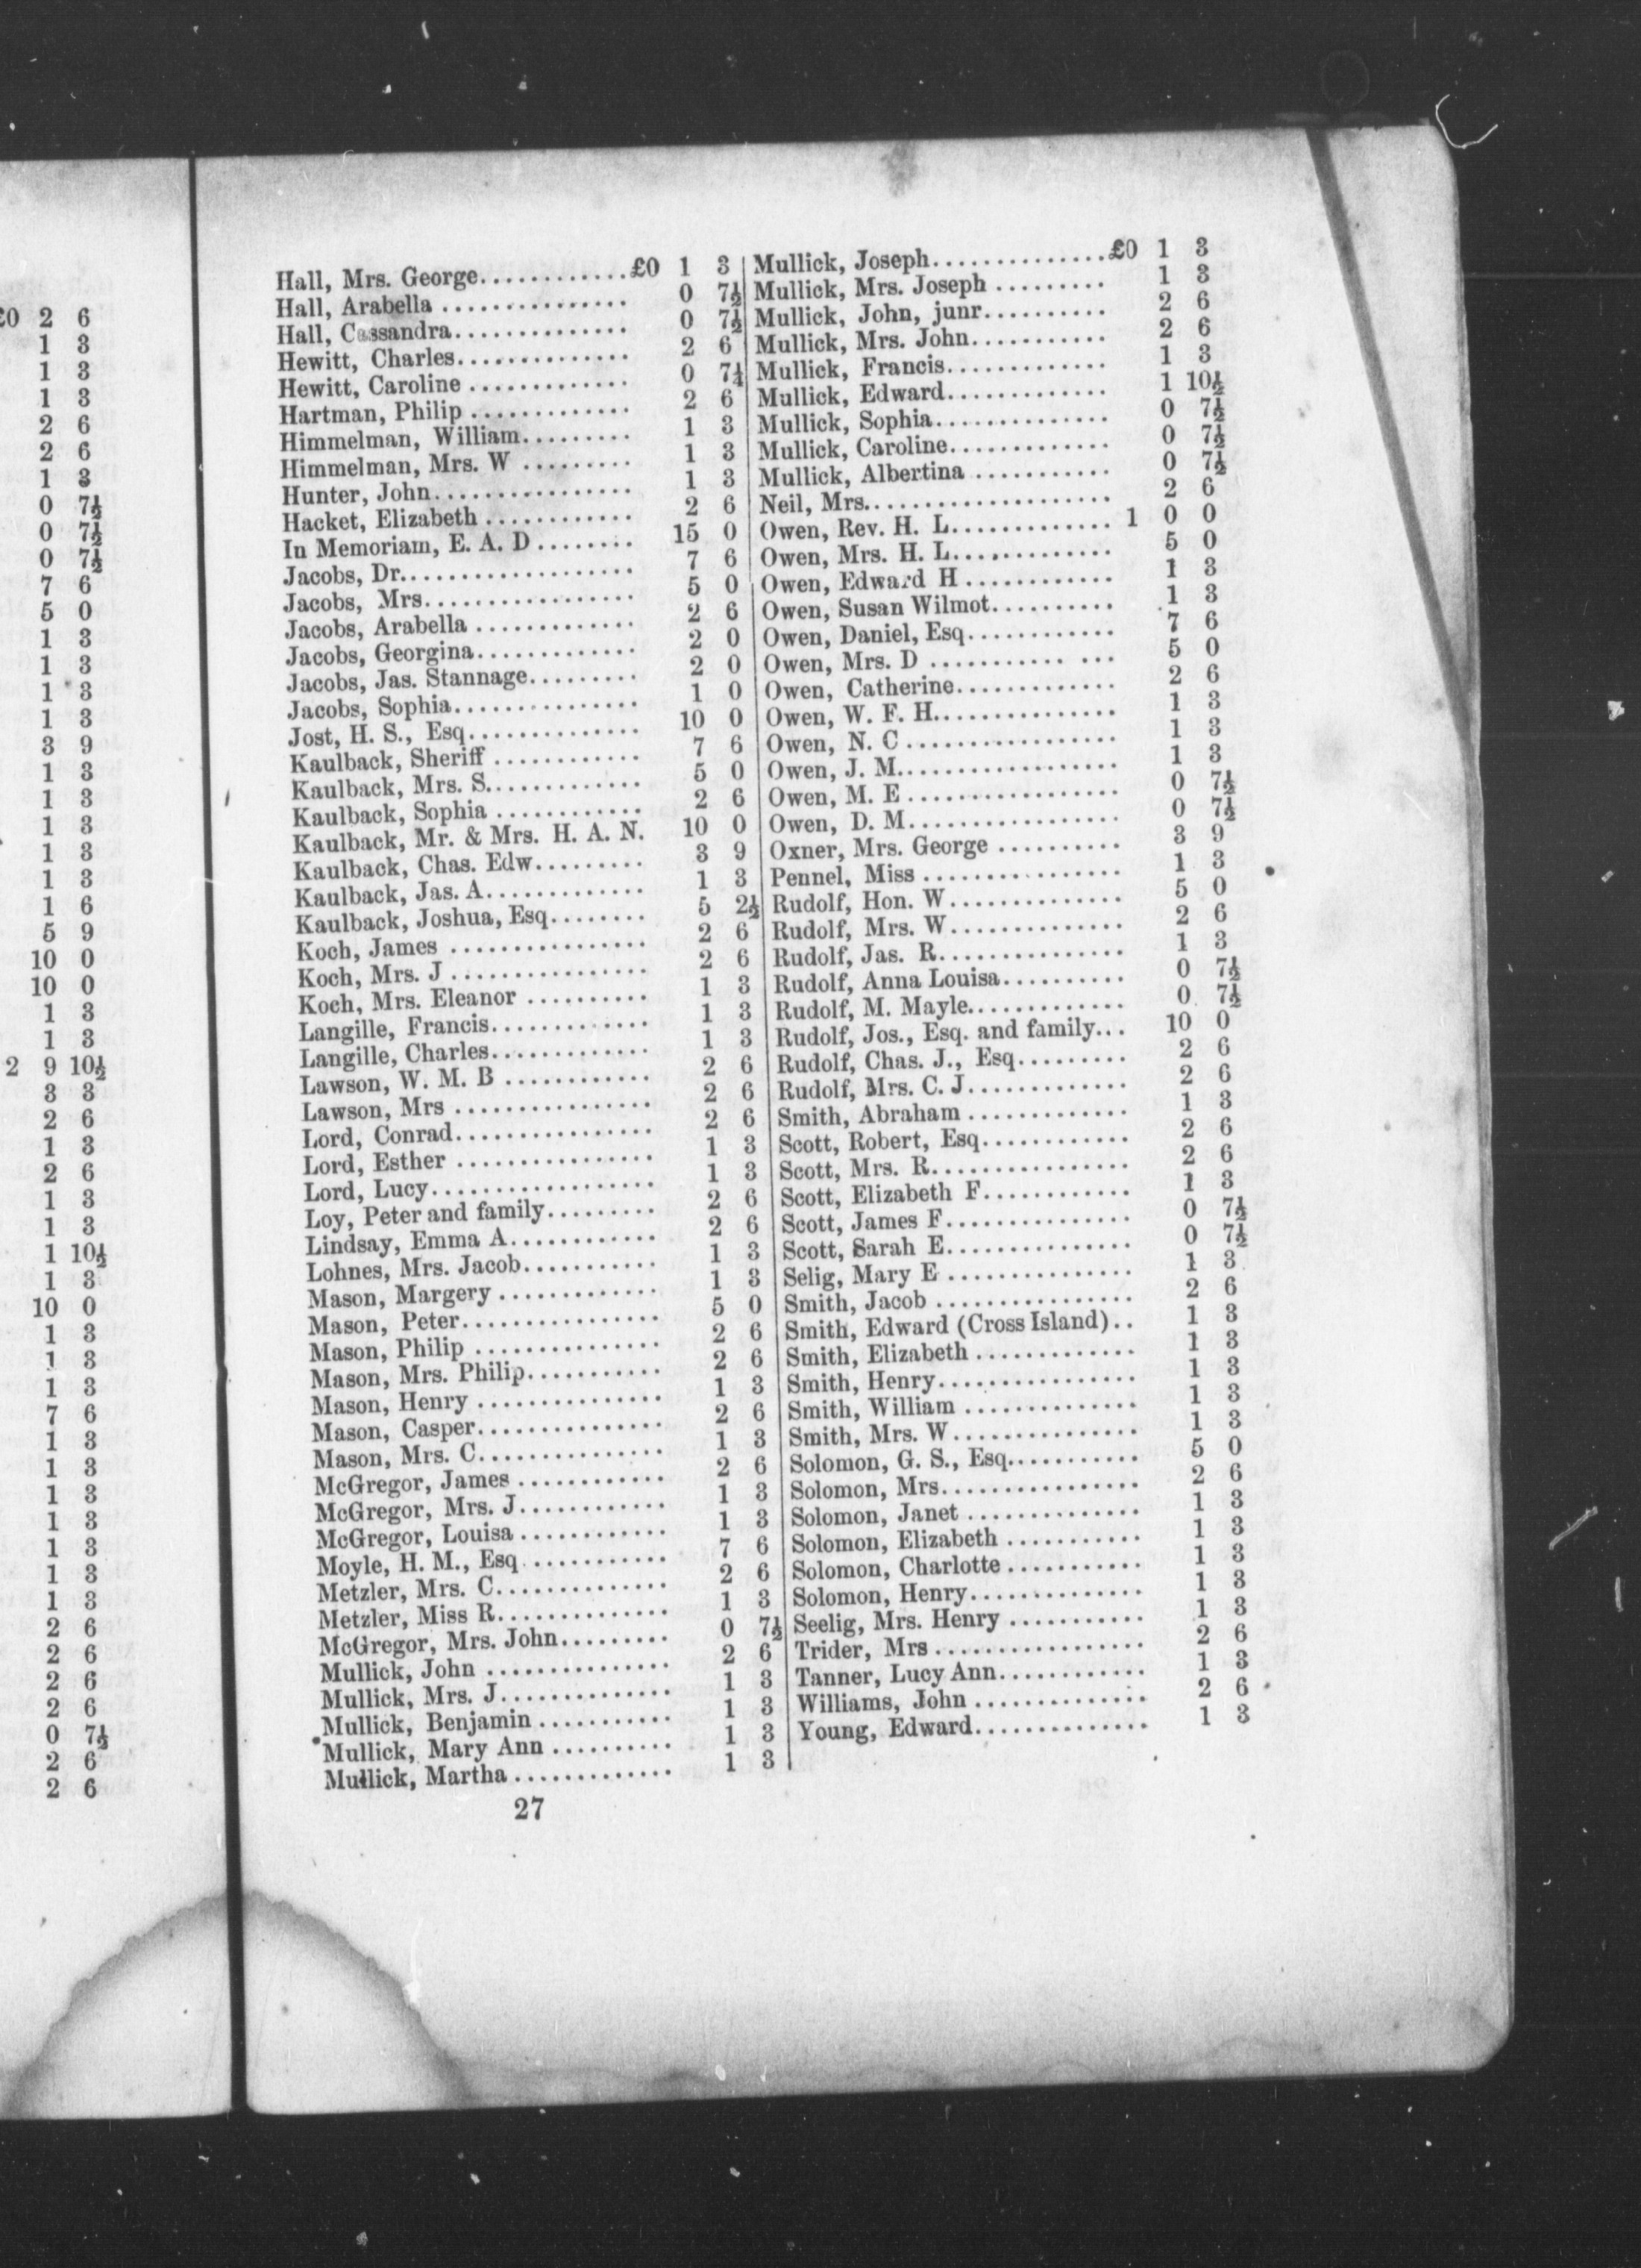 £0 2 6
1 3
1 3
1 3
2 6
2 6
1 3
0 7½
0 7½
0 7½
7 6
5 0
1 3
1 3
1 3
1 3
3 9
1 3
1 3
1 3
1 3
1 3
1 6
5 9
10 0
10 0
1 3
1 3
2 9 10½
3 3
2 6
1 3
2 6
1 3
1 3
1 10½
1 3
10 0
1 3
1 3
1 3
7 6
1 3
1 3
1 3
1 3
1 3
1 3
1 3
2 6
2 6
2 6
2 6
0 7½
2 6
2 6
Hall, Mrs. George............£0 1 3
Hall, Arabella ............... 0 7½
Hall, Cassandra.............. 0 7½
Hewitt, Charles.............. 2 6
Hewitt, Caroline ............. 0 7¼
Hartman, Philip ............. 2 6
Himmelman, William......... 1 3
Himmelman, Mrs. W ......... 1 3
Hunter, John................ 1 3
Hacket, Elizabeth ............ 2 6
In Memoriam, E. A. D ........ 15 0
Jacobs, Dr................... 7 6
Jacobs, Mrs................. 5 0
Jacobs, Arabella ............. 2 6
Jacobs, Georgina............. 2 0
Jacobs, Jas. Stannage......... 2 0
Jacobs, Sophia............... 1 0
Jost, H. S., Esq.............. 10 0
Kaulback, Sheriff ............ 7 6
Kaulback, Mrs. S............. 5 0
Kaulback, Sophia ............ 2 6
Kaulback, Mr. & Mrs. H. A. N. 10 0
Kaulback, Chas. Edw......... 3 9
Kaulback, Jas. A............. 1 3
Kaulback, Joshua, Esq........ 5 2½
Koch, James ................ 2 6
Koch, Mrs. J ................ 2 6
Koch, Mrs. Eleanor .......... 1 3
Langille, Francis............. 1 3
Langille, Charles............. 1 3
Lawson, W. M. B ............ 2 6
Lawson, Mrs ................ 2 6
Lord, Conrad................ 2 6
Lord, Esther ................ 1 3
Lord, Lucy.................. 1 3
Loy, Peter and family......... 2 6
Lindsay, Emma A............ 2 6
Lohnes, Mrs. Jacob........... 1 3
Mason, Margery ............. 1 3
Mason, Peter................ 5 0
Mason, Philip ............... 2 6
Mason, Mrs. Philip........... 2 6
Mason, Henry ............... 1 3
Mason, Casper............... 2 6
Mason, Mrs. C............... 1 3
McGregor, James ............ 2 6
McGregor, Mrs. J............ 1 3
McGregor, Louisa ............ 1 3
Moyle, H. M., Esq ............ 7 6
Metzler, Mrs. C.............. 2 6
Metzler, Miss R.............. 1 3
McGregor, Mrs. John......... 0 7½
Mullick, John ............... 2 6
Mullick, Mrs. J.............. 1 3
Mullick, Benjamin ........... 1 3
Mullick, Mary Ann .......... 1 3
Mullick, Martha ............. 1 3
Mullick, Joseph..............£0 1 3
Mullick, Mrs. Joseph ......... 1 3
Mullick, John, junr.......... 2 6
Mullick, Mrs. John........... 2 6
Mullick, Francis............. 1 3
Mullick, Edward............. 1 10½
Mullick, Sophia.............. 0 7½
Mullick, Caroline............ 0 7½
Mullick, Albertina ........... 0 7½
Neil, Mrs.................... 2 6
Owen, Rev. H. L............. 1 0 0
Owen, Mrs. H. L............. 5 0
Owen, Edward H ............ 1 3
Owen, Susan Wilmot.......... 1 3
Owen, Daniel, Esq............ 7 6
Owen, Mrs. D ........... ... 5 0
Owen, Catherine............. 2 6
Owen, W. F. H............... 1 3
Owen, N. C ................. 1 3
Owen, J. M.................. 1 3
Owen, M. E ................. 0 7½
Owen, D. M................. 0 7½
Oxner, Mrs. George .......... 3 9
Pennel, Miss ................ 1 3
Rudolf, Hon. W.............. 5 0
Rudolf, Mrs. W.............. 2 6
Rudolf, Jas. R............... 1 3
Rudolf, Anna Louisa.......... 0 7½
Rudolf, M. Mayle............. 0 7½
Rudolf, Jos., Esq. and family... 10 0
Rudolf, Chas. J., Esq......... 2 6
Rudolf, Mrs. C. J............. 2 6
Smith, Abraham ............. 1 3
Scott, Robert, Esq............ 2 6
Scott, Mrs. R................ 2 6
Scott, Elizabeth F............ 1 3
Scott, James F............... 0 7½
Scott, Sarah E............... 0 7½
Selig, Mary E ............... 1 3
Smith, Jacob ................ 2 6
Smith, Edward (Cross Island).. 1 3
Smith, Elizabeth ............. 1 3
Smith, Henry................ 1 3
Smith, William .............. 1 3
Smith, Mrs. W............... 1 3
Solomon, G. S., Esq........... 5 0
Solomon, Mrs................ 2 6
Solomon, Janet .............. 1 3
Solomon, Elizabeth ........... 1 3
Solomon, Charlotte ........... 1 3
Solomon, Henry.............. 1 3
Seelig, Mrs. Henry ........... 1 3
Trider, Mrs ................. 2 6
Tanner, Lucy Ann............ 1 3
Williams, John .............. 2 6
Young, Edward.............. 1 3
27